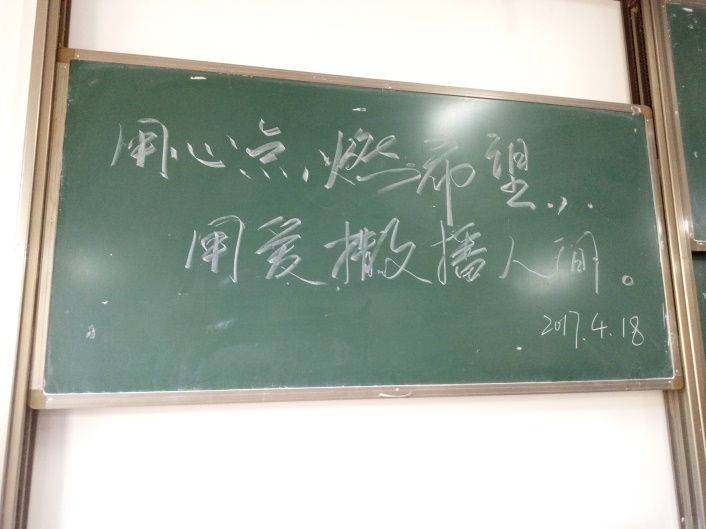 用心点燃希望,
用爱撒播人间。
2017.4.18